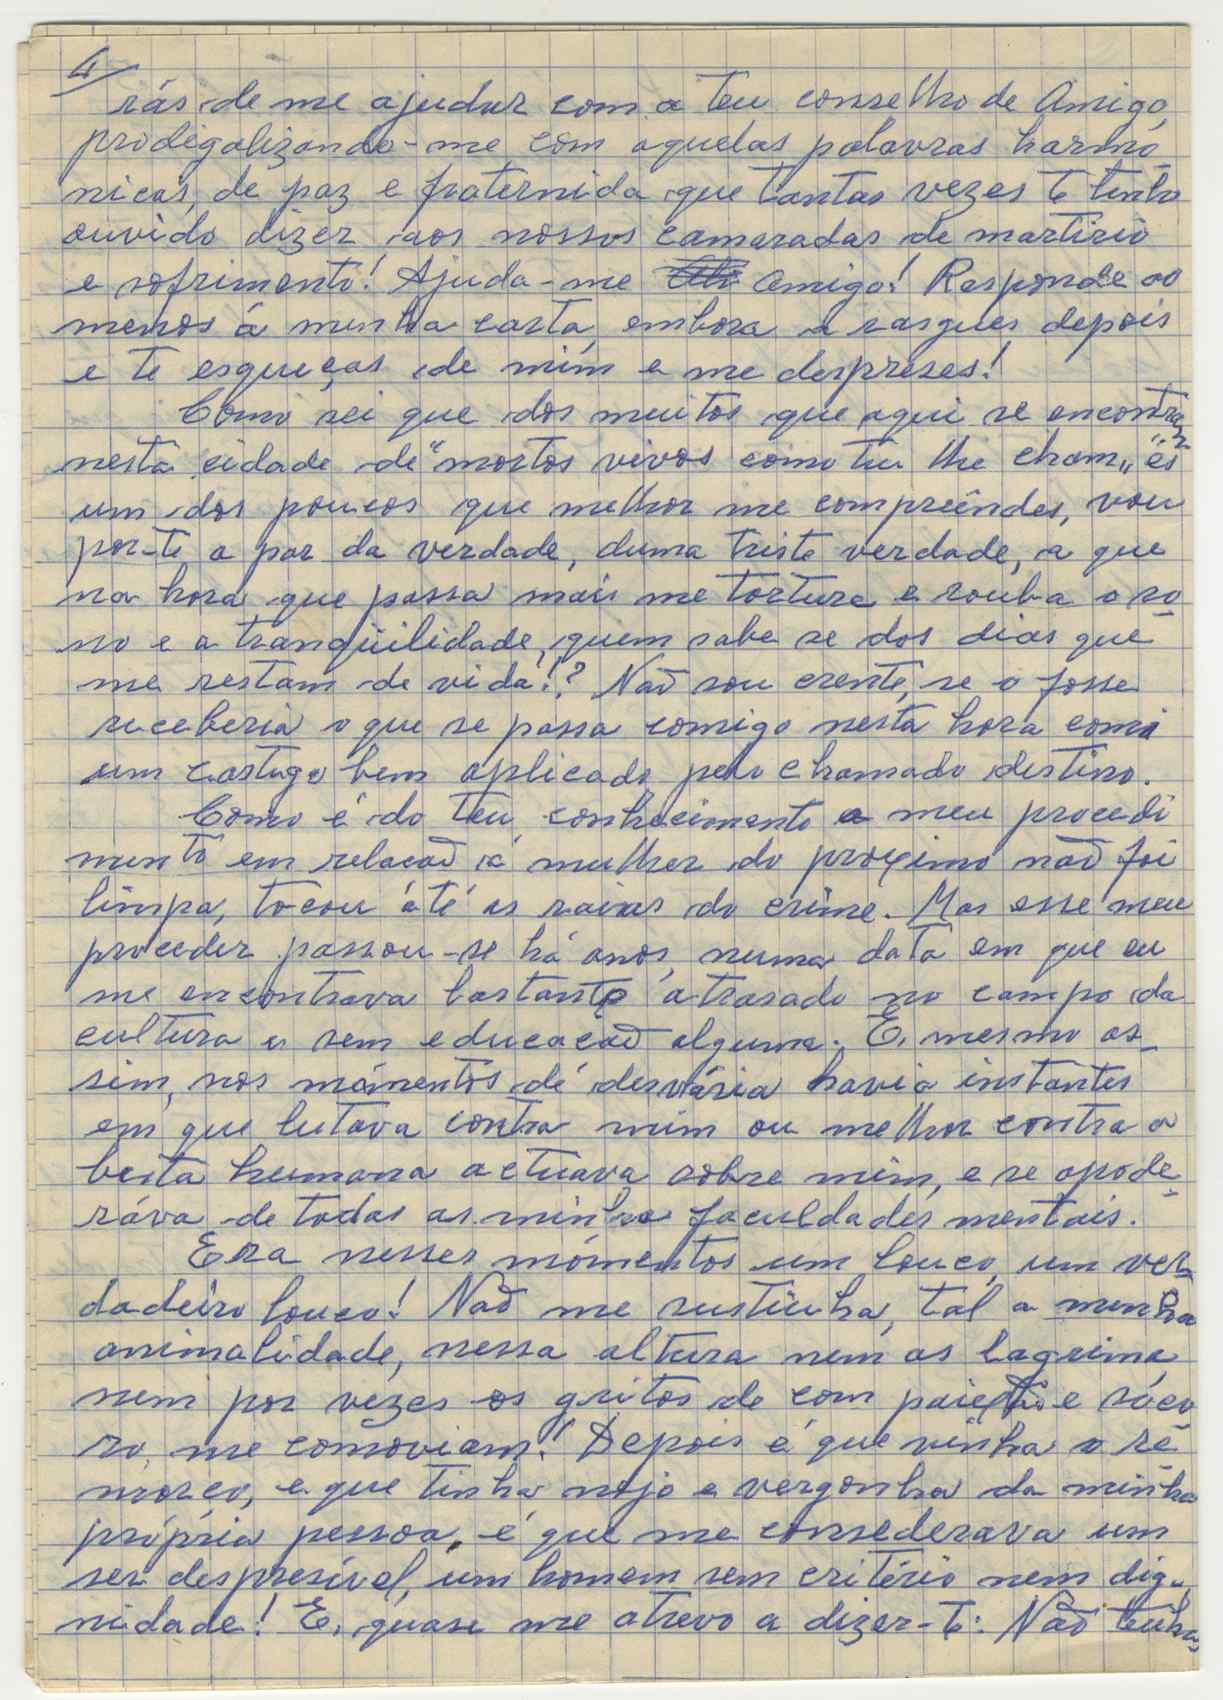 4
rás de me ajudar com o teu conselho de Amigo,
prodigalizando-me com aquelas palavras harmó
nicas, de paz e fraternida que tantas vezes te tenho
ouvido dizer aos nossos camaradas de martirio
e sofrimento! Ajuda-me Amigo! Responde ao
menos á minha carta, embora a rasgues depois
e te esqueças de mim e me despreses!
Como sei que dos muitos que aqui se encontram
nesta cidade de "mortos vivos como tu lhe cham,, és
um dos poucos que melhor me compreêndes, vou
por-te a par da verdade, duma triste verdade, a que
na hora que passa mais me tortura e rouba o so
no e a tranqüilidade, quem sabe se dos dias que
me restam de vida!? Não sou crente, se o fosse
receberia o que se passa comigo nesta hora como
um castigo bem aplicado pelo chamado destino.
Como é do teu conhecimento o meu procedi
mento em relação á mulher do proximo não foi
limpa, tocou até as raias do crime. Mas esse meu
proceder passou-se há anos, numa data em que eu
me encontrava bastante atrasado no campo da
cultura e sem educação alguma. E, mesmo as_
sim, nos mómentos de desvária havia instantes
em que lutava contra mim ou melhor contra a
besta humana actuava sobre mim, e se apode_
ráva de todas as minhas faculdades mentais.
Era nesses mómentos um louco, um ver
dadeiro louco! Não me sustinha, tal a minha
animalidade, nessa altura nem as lagrima,
nem por vezes os gritos de com paixão e sóco
ro, me comoviam! Depois é que vinha o re
morço, e que tinha nojo e vergonha da minha
própria pessoa, é que me consederava um
ser despresível, um homem sem critério nem dig_
nidade! E, quase me atrevo a dizer-te: Não tenhas